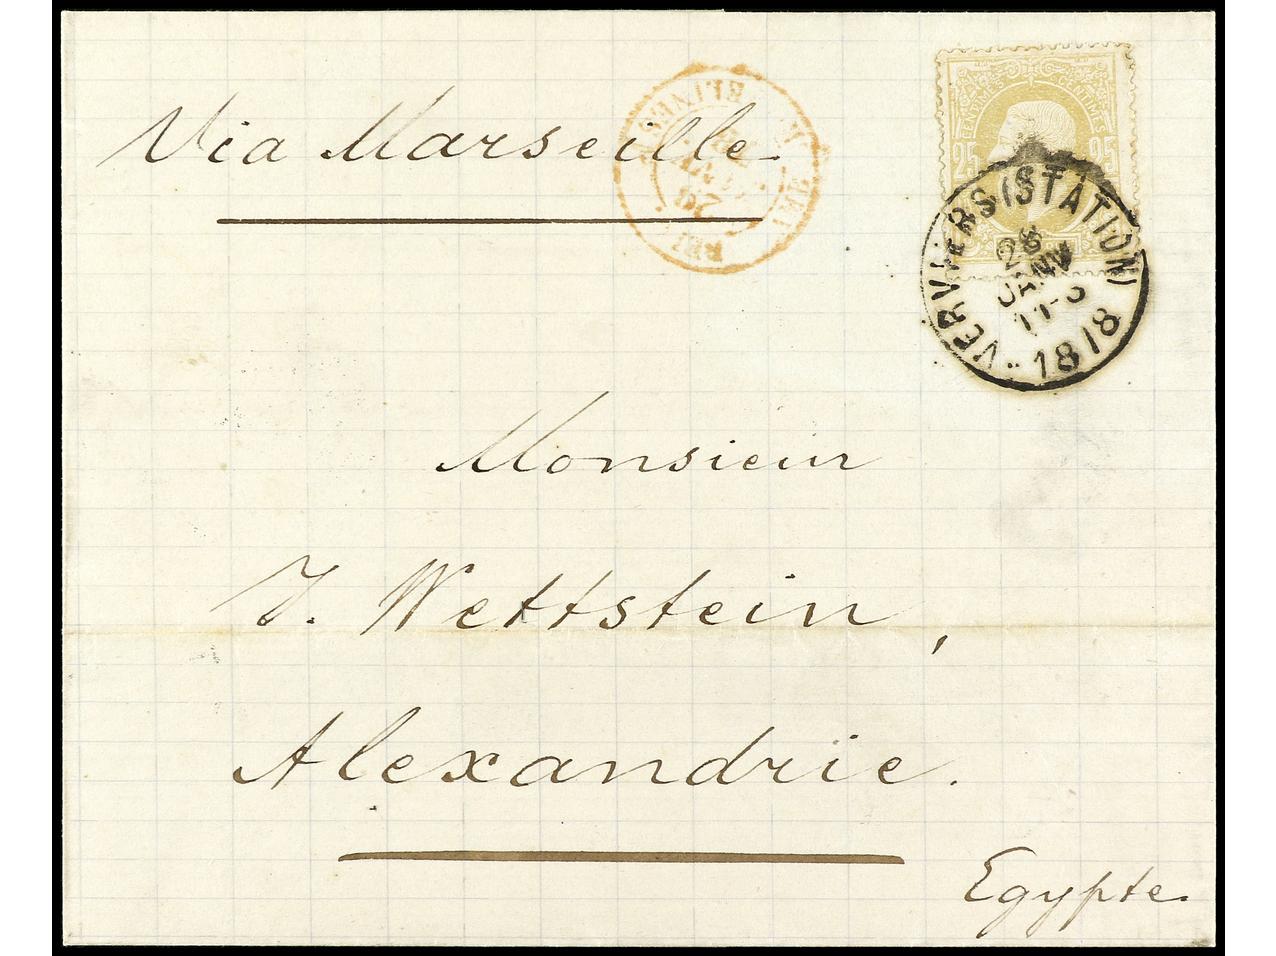 Via Marseille
CENTIMES CENTIMES
25 25
VERVIERS (STATION)
28
JANV
1878
Monsieur
J. Wettstein,
Alexandrie.
Egypte.